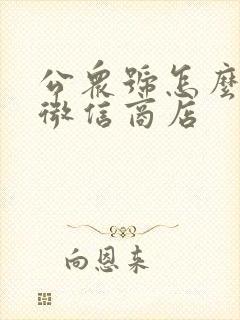 公衆號怎麼
微信商店
向恩来